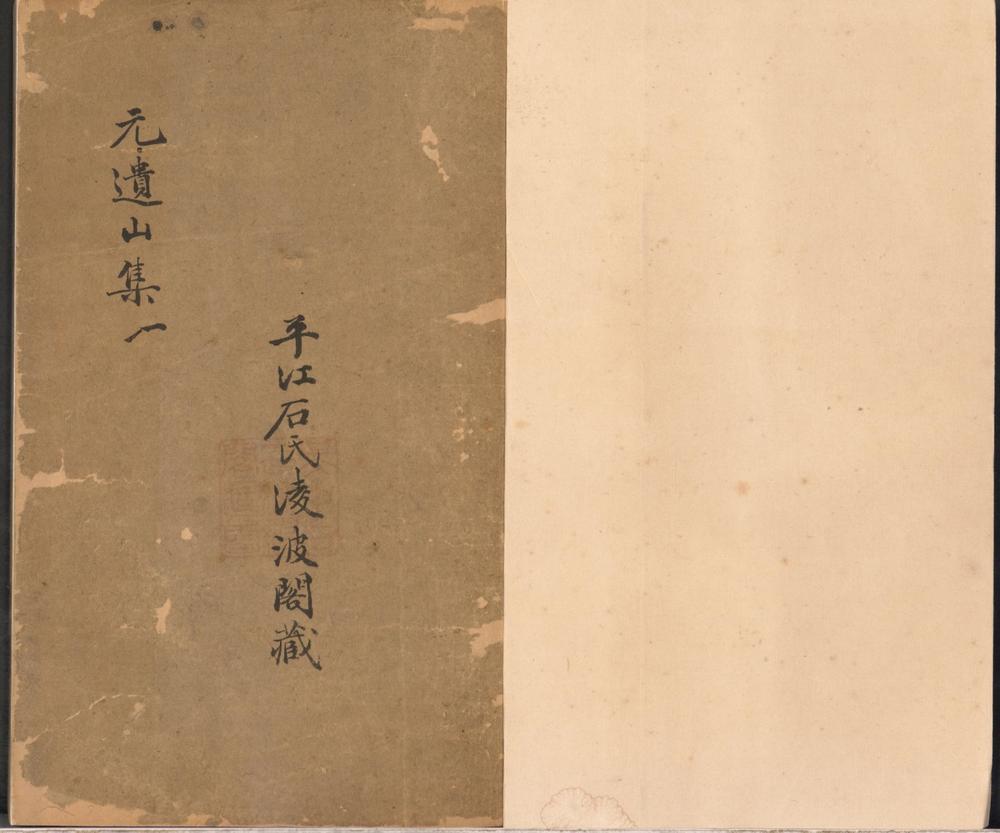 元遺山集 一
平江石氏淩波閣藏